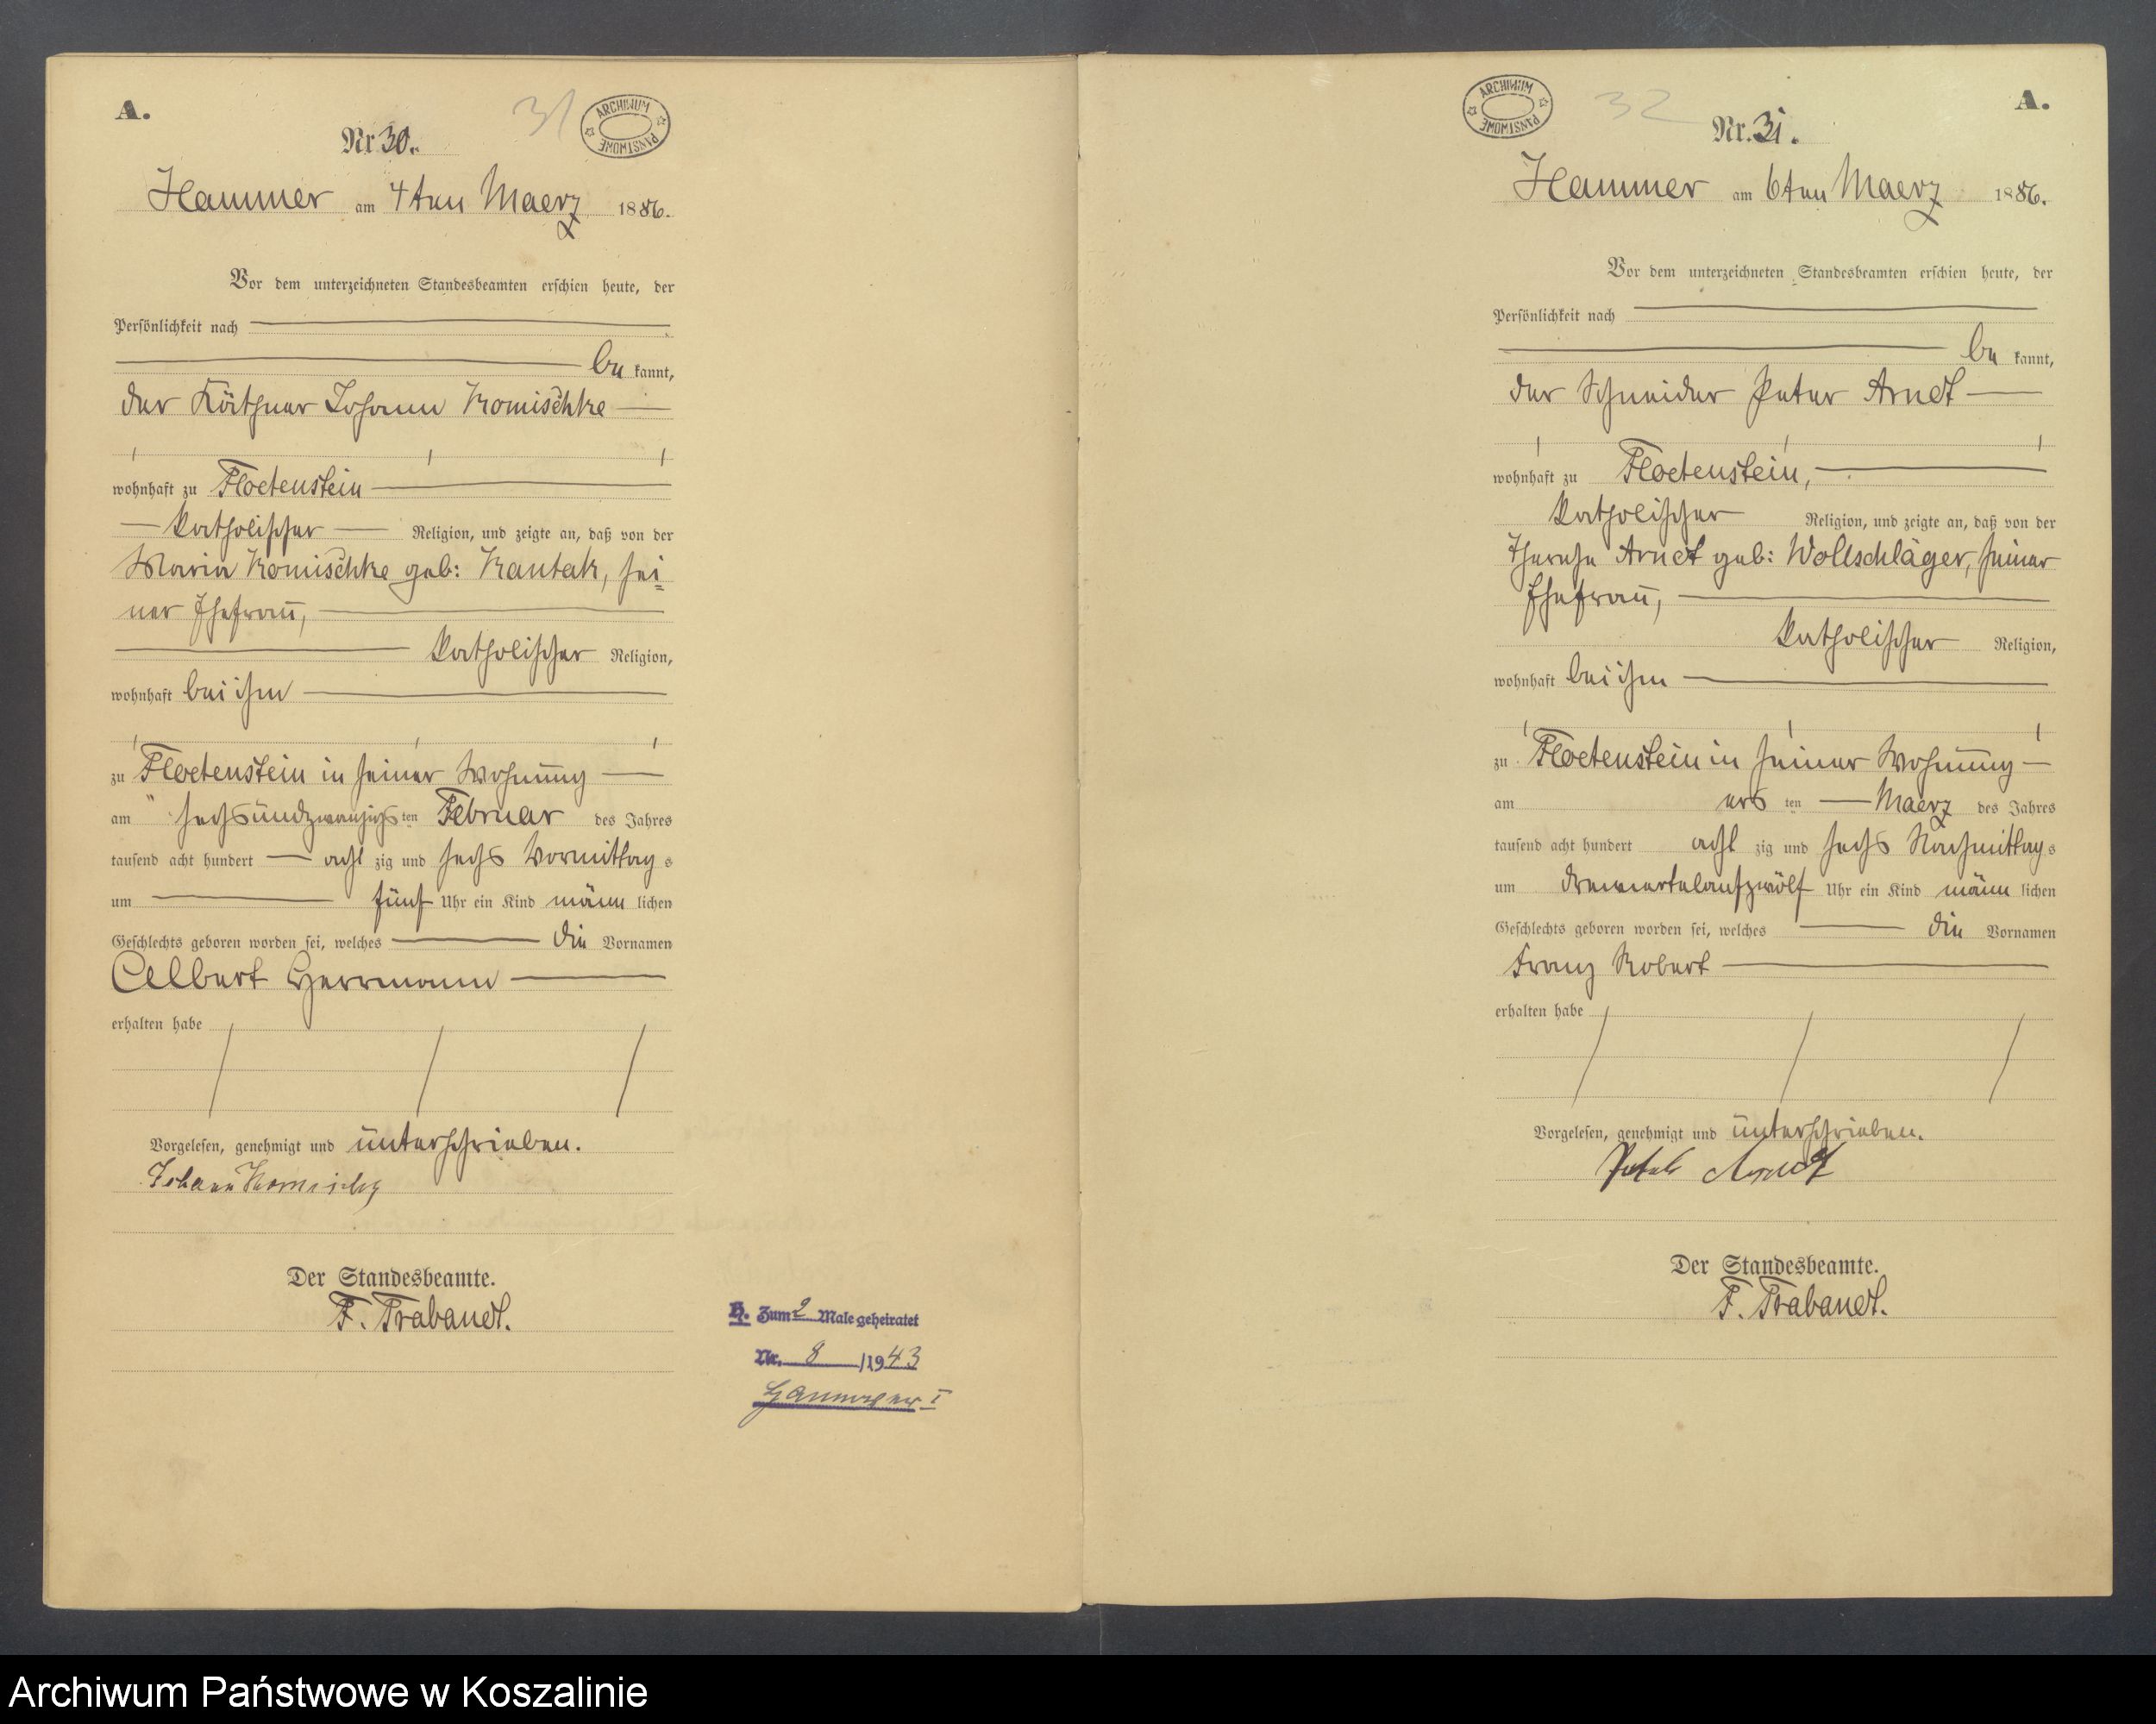 A.
31
ARCHIWUM PAŃSTWOWE
Nr 30.
Hammer am 4ten Maerz 1886.
Vor dem unterzeichneten Standesbeamten erschien heute, der
Persönlichkeit nach
be kannt,
der Käthner Johann Komischke
wohnhaft zu Floetenstein
katholischer Religion, und zeigte an, daß von der
Maria Komischke geb: Kantak, sei=
ner Ehefrau,
katholischer Religion,
wohnhaft bei ihm
zu Floetenstein in seiner Wohnung
am sechsundzwanzigs ten Februar des Jahres
tausend acht hundert acht zig und sechs Vormittag s
um fünf Uhr ein Kind männ lichen
Geschlechts geboren worden sei, welches die Vornamen
Albert Herrmann
erhalten habe
Vorgelesen, genehmigt und unterschrieben.
Johann
Der Standesbeamte.
F. Trabandt.
H. Zum 2 Male geheiratet
Nr. 8 /1943
I
ARCHIWUM PAŃSTWOWE
32
A.
Nr. 31.
Hammer am 6ten Maerz 1886.
Vor dem unterzeichneten Standesbeamten erschien heute, der
Persönlichkeit nach
be kannt,
der Schneider Peter Arndt
wohnhaft zu Floetenstein,
katholischer Religion, und zeigte an, daß von der
Therese Arndt geb: Wollschläger, seiner
Ehefrau,
katholischer Religion,
wohnhaft bei ihm
zu Floetenstein in seiner Wohnung
am ers ten Maerz des Jahres
tausend acht hundert acht zig und sechs Nachmittag s
um dreiviertelaufzwölf Uhr ein Kind männ lichen
Geschlechts geboren worden sei, welches die Vornamen
Franz Robert
erhalten habe
Vorgelesen, genehmigt und unterschrieben.
Peter Arndt
Der Standesbeamte.
F. Trabandt.
Archiwum Państwowe w Koszalinie